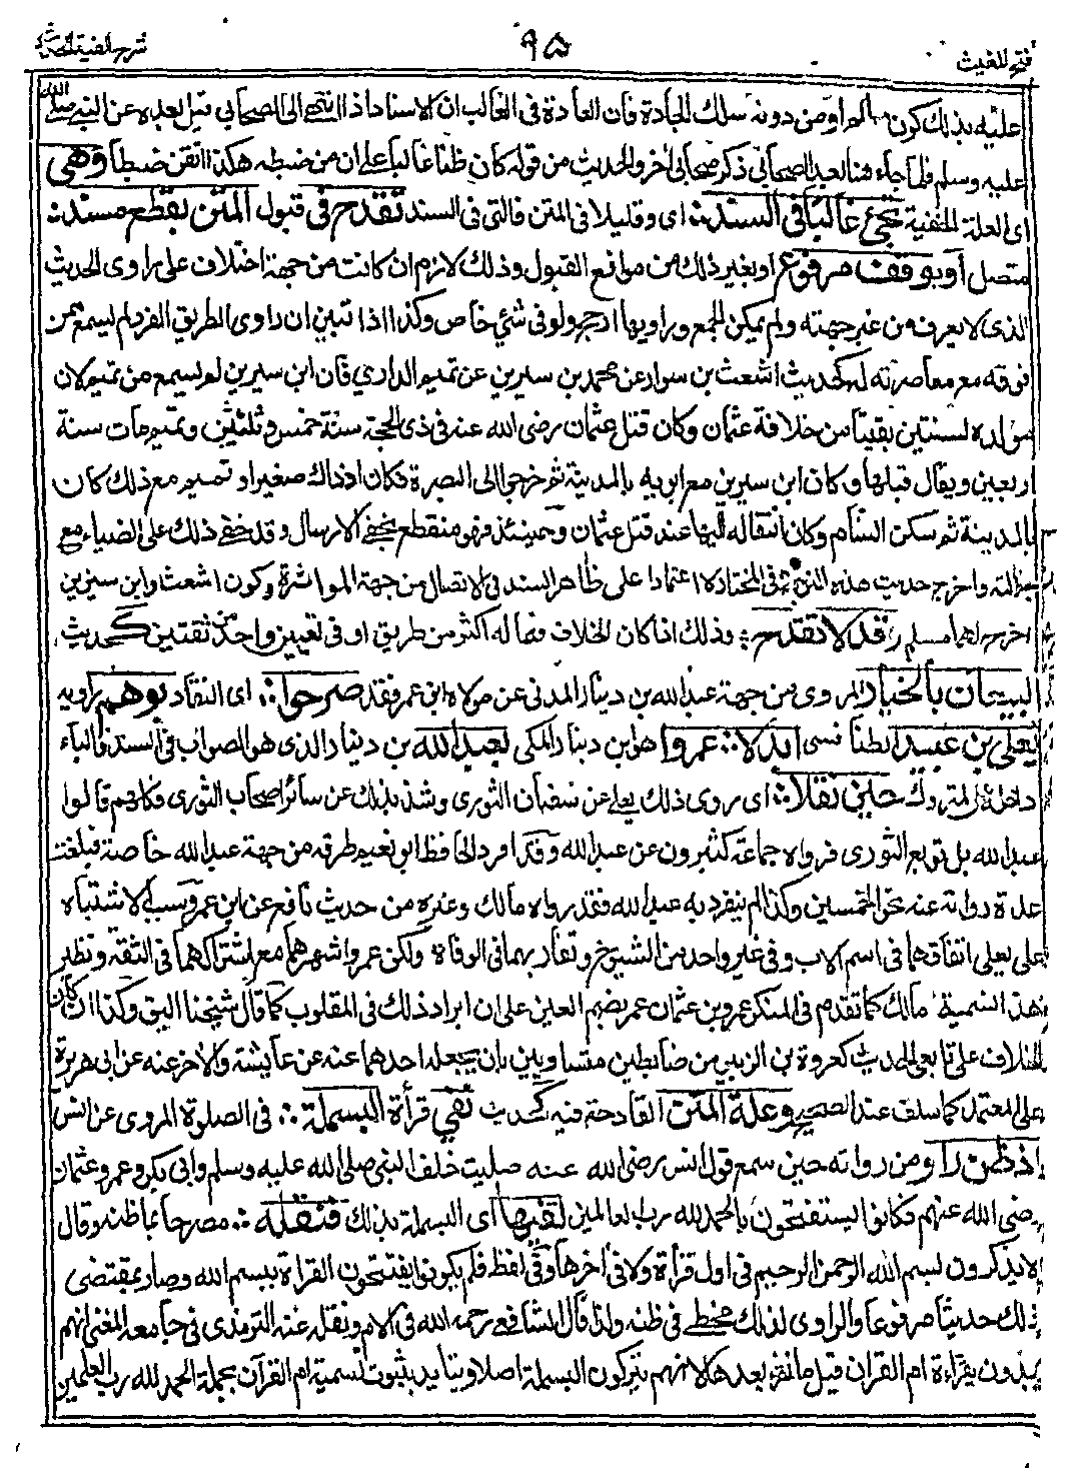 فتح المغيث ٩٥ شرح الفية الحديث
عليه بذلك كون الراو ومن دونه سلك الجادة فان العادة فى الغالب ان الاسناد اذا انتهى الى الصحابي قيل بعده عن النبي صلى الله
عليه وسلم فلما جاء هنا بعد الصحابي ذكر صحابي اخر والحديث من قوله كان ظنا غالبا على ان من ضبطه هكذا اتقن ضبطا وهى
اى العلة الخفية تجىء غالبا فى السند اى وقليلا فى المتن فالتى فى السند تقدح فى قبول المتن بقطع مسند
متصل أو بوقف مرفوع او بغير ذلك من موانع القبول وذلك لازم ان كانت من جهة اختلاف على راوى الحديث
الذى لا يعرف من غير جهته ولم يمكن الجمع وراويها ارجح ولو فى شئ خاص وكذا اذا تبين ان راوى الطريق الفرد لم يسمع ممن
فوقه مع معاصرته له كحديث اشعث بن سوار عن محمد بن سيرين عن تميم الداري فان ابن سيرين لم يسمع من تميم لان
مولده لسنتين بقيتا من خلافة عثمان وكان قتل عثمان رضى الله عنه فى ذى الحجة سنة خمس وثلثين وتميم مات سنة
اربعين ويقال قبلها وكان ابن سيرين مع ابويه بالمدينة ثم خرجا الى البصرة فكان اذ ذاك صغيرا وتميم مع ذلك كان
بالمدينة ثم سكن الشام وكان انتقاله اليها عند قتل عثمان وحينئذ فهو منقطع بخفى الارسال وقد خفى ذلك على الضياء مع
جلالته واخرج حديث هذه الترجمة فى المختارة اعتمادا على ظاهر السند فى الاتصال من جهة المعاصرة وكون اشعث وابن سيرين
اخرج لهما مسلم وقد لا تقدح وذلك اذا كان الخلاف فيما له اكثر من طريق او فى تعيين واحد من ثقتين كحديث
البيعان بالخيار المروى من جهة عبد الله بن دينار المدنى عن مولاه ابن عمر فقد صرحوا اى النقاد بوهم راويه
يعلى بن عبيد الطنافسى ابدلا عمروا هو ابن دينار المكى بعبد الله بن دينار الذى هو الصواب فى السند فالباء
داخلة على المتروك حين نقلا اى روى ذلك يعلى عن سفيان الثورى وشذ بذلك عن سائر اصحاب الثورى فكلهم قالوا
عبد الله بل توبع الثورى فرواه جماعة كثيرون عن عبد الله وقد افرد الحافظ ابو نعيم طرقه من جهة عبد الله خاصة فبلغت
عدة رواته عنه نحو الخمسين وكذا لم ينفرد به عبد الله فقد رواه مالك وغيره من حديث نافع عن ابن عمر وسبب الاشتباه
على يعلى اتفاقهما فى اسم الاب وفى غير واحد من الشيوخ وتقاربهما فى الوفاة ولكن عمروا شهرهما مع اشتراكهما فى الثقة ونظير
هذا تسمية مالك كما تقدم فى المنكر عمرو بن عثمان عمر بضم العين على ان ايراد ذلك فى المقلوب كما قال شيخنا اليق وكذا ان كان
الخلاف على تابعى الحديث كعروة بن الزبير من ضابطين متساويين بان يجعله احدهما عنه عن عايشة والاخر عنه عن ابى هريرة
على المعتمد كما سلف عند الصحيح وعلة المتن القادحة فيه كحديث نفى قرأة البسملة فى الصلوة المروى عن انس
اذ ظن راو من رواته حين سمع قول انس رضى الله عنه صليت خلف النبى صلى الله عليه وسلم وابى بكر وعمر وعثمان
رضى الله عنهم فكانوا يستفتحون بالحمد لله رب العالمين نفيها اى البسملة بذلك فنقله مصرحا بما ظنه وقال
لا يذكرون بسم الله الرحمن الرحيم فى اول قرأة ولا فى اخرها وفى لفظ فلم يكونوا يفتتحون القراة ببسم الله وصار بمقتضى
ذلك حديثا مرفوعا والراوى لذلك مخطى فى ظنه ولذا قال الشافعى رحمه الله فى الام ونقله عنه الترمذى فى جامعه المعنى انهم
يبدون بقراءة ام القران قبل ما نقرء بعدها لا انهم يتركون البسملة اصلا ويتايد بثبوت تسمية ام القرآن بجملة الحمد لله رب العلمين